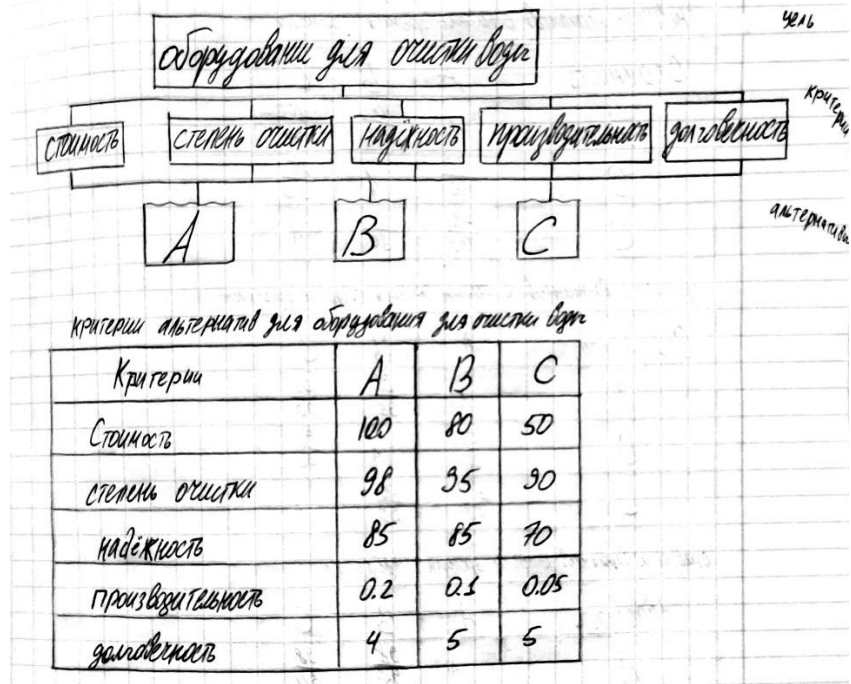 цель
оборудование для очистки воды
критерии
стоимость степень очистки надёжность производительность долговечность
альтернативы
A B C
критерии альтернатив для оборудования для очистки воды
Критерии A B C
Стоимость 100 80 50
степень очистки 98 95 90
надёжность 85 85 70
производительность 0.2 0.1 0.05
долговечность 4 5 5